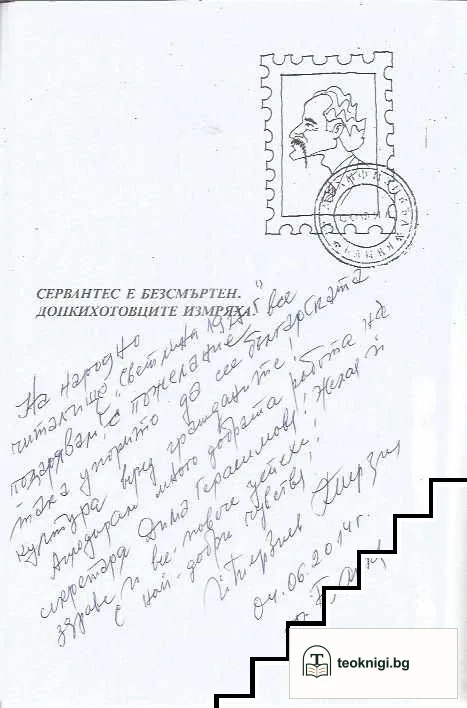 СЕРВАНТЕС Е БЕЗСМЪРТЕН.
ДОНКИХОТОВЦИТЕ ИЗМРЯХА!
На народно
читалище „Светлина 1925"
подарявам, с пожелание все
така упорито да сее българската
култура сред гражданите!
Аплодирам много добрата работа на
секретаря Дима Герасимова! Желая ѝ
здраве и все повече успехи!
С най-добри чувства,
04.06.2014 г.
СОФИЯ
teoknigi.bg